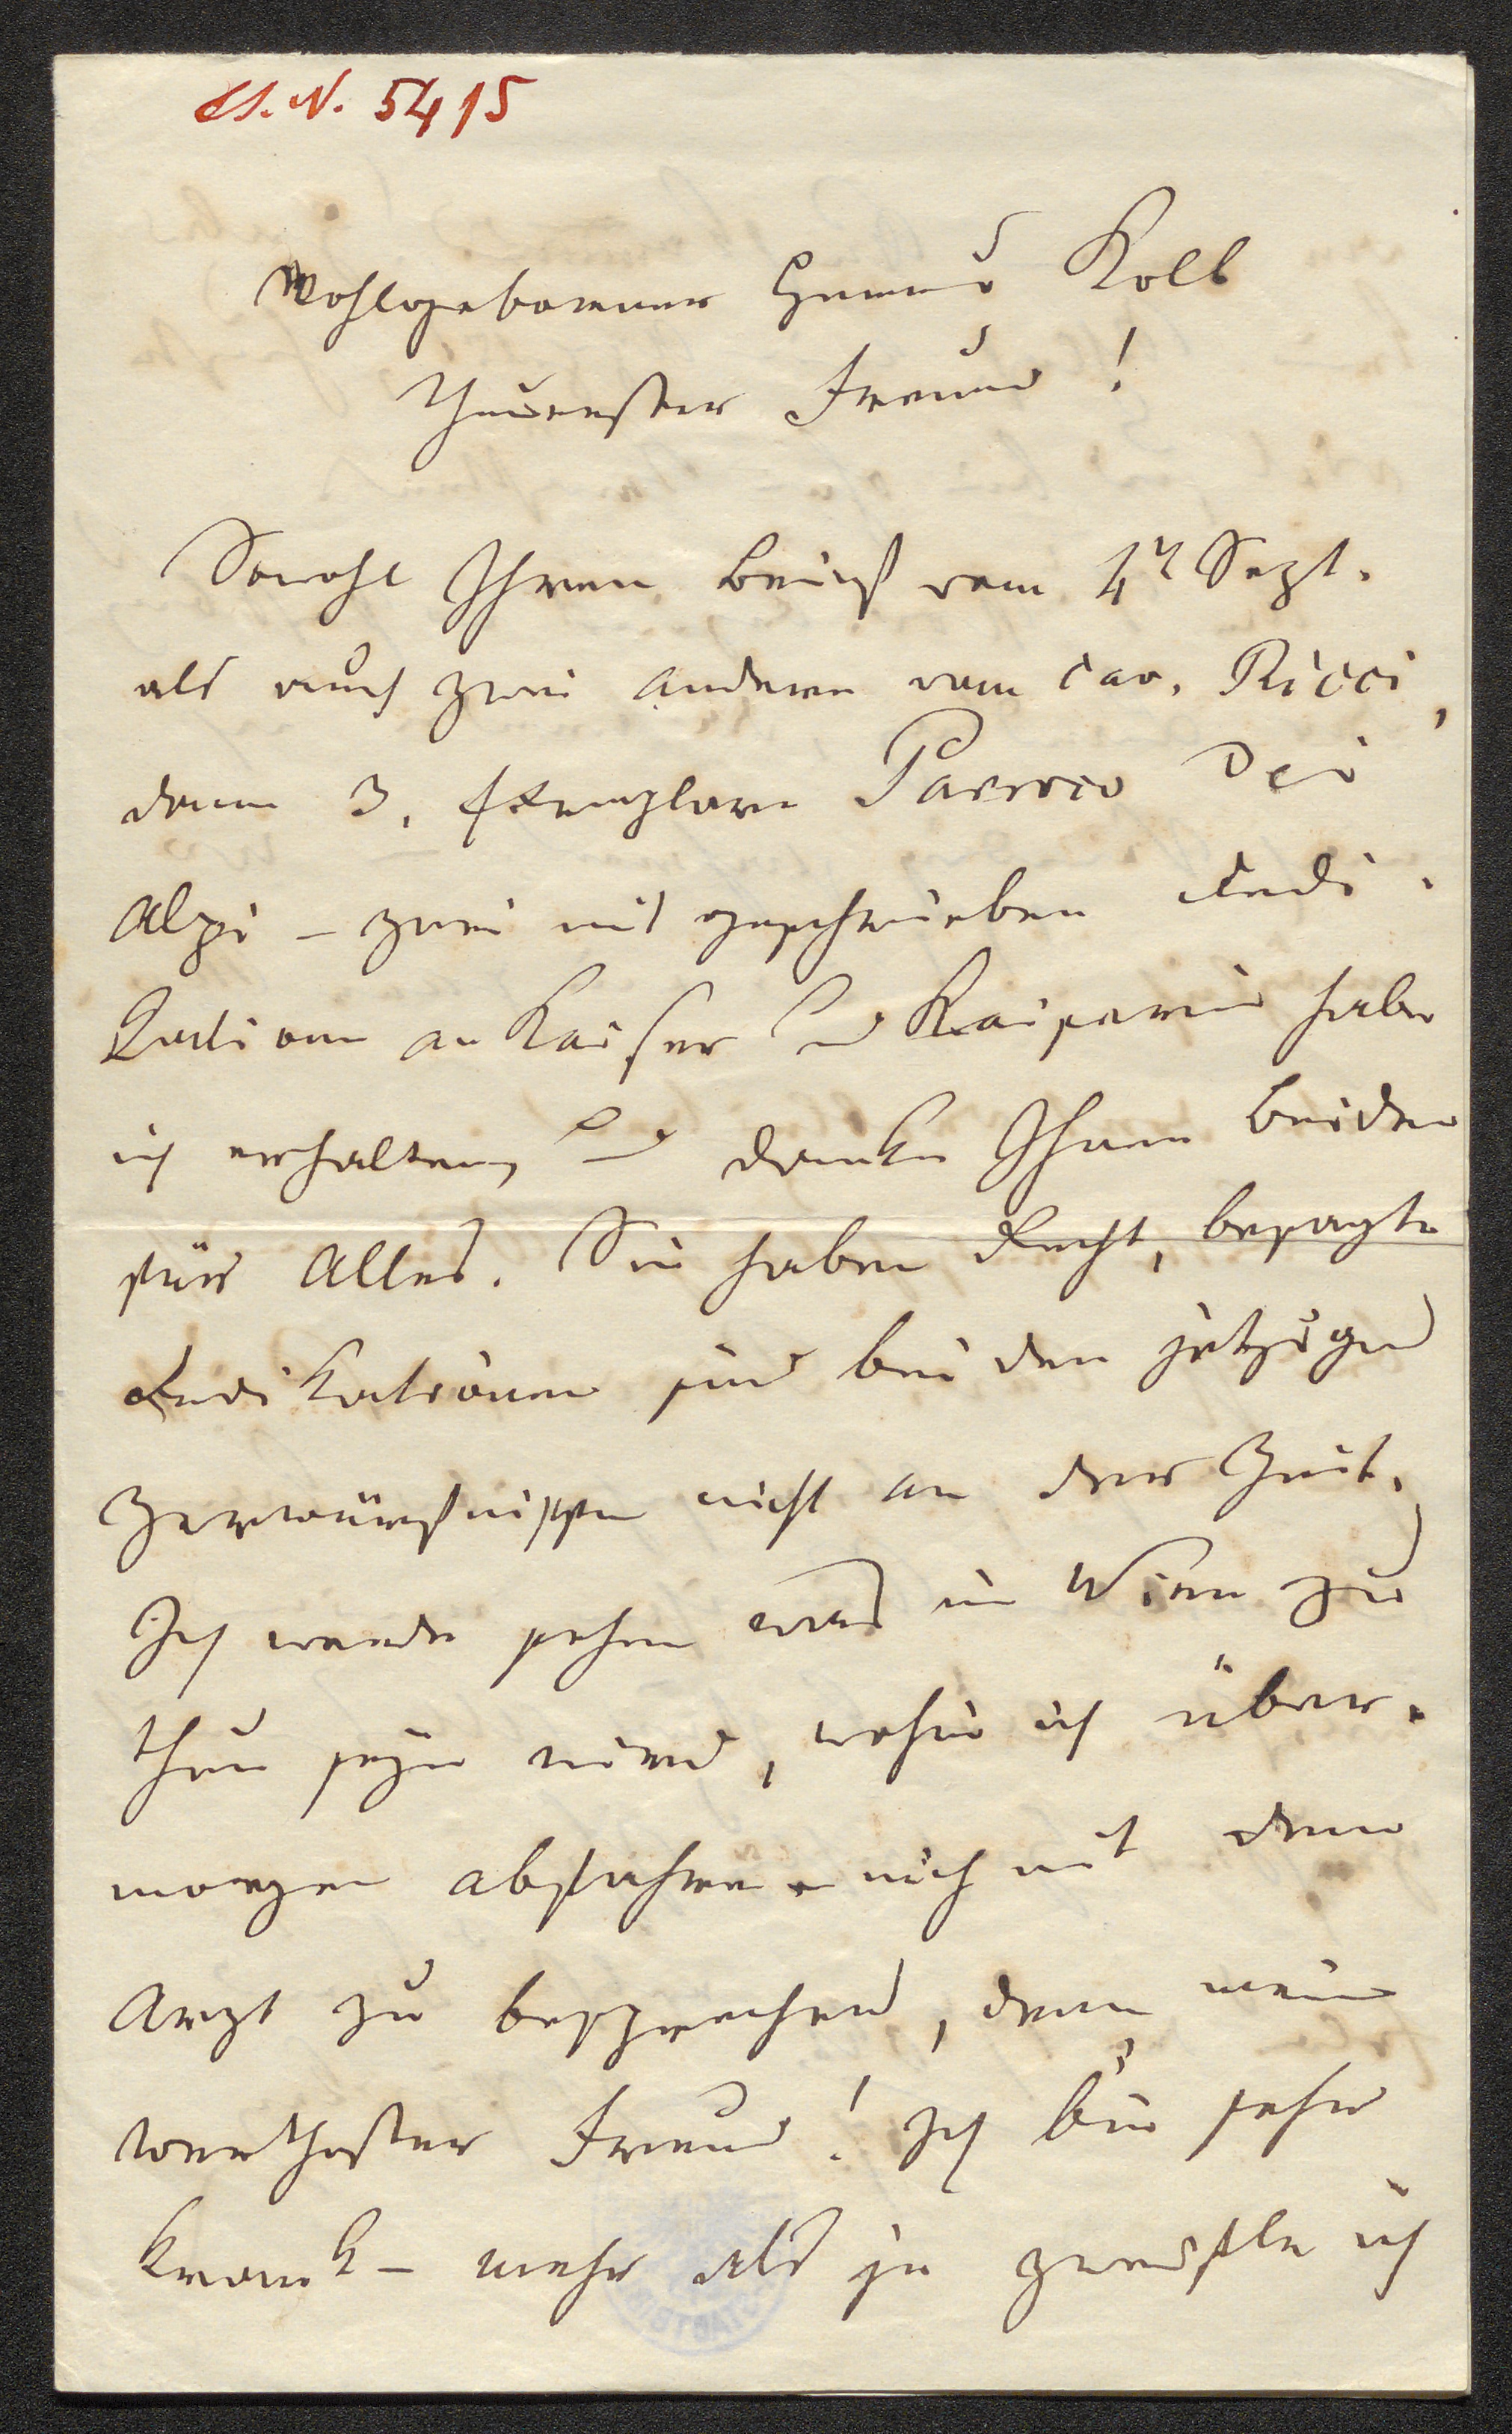 H. N. 5415
Wohlgeborener Herrn Kolb
Theuerster Freund!
Sowohl Ihren Brief vom 4t Sept.
als auch zwei andere vom cav. Ricci,
dann 3. Exemplare Parroco dei
Alpi – zwei mit geschrieben Dedi-
kationen an Kaiser und Kaiserin habe
ich erhalten, und danke Ihnen beiden
für Alles. Sie haben Recht, besagte
Dedikationen sind bei den jetzigen
Zerwürfnissen nicht an der Zeit.
Ich werde sehen was in Wien zu
thun seyn wird, wohin ich über-
morgen abfahre mich mit dem
Arzt zu besprechen, denn mein
werthester Freund! Ich bin sehr
krank – mehr als je zweifle ich